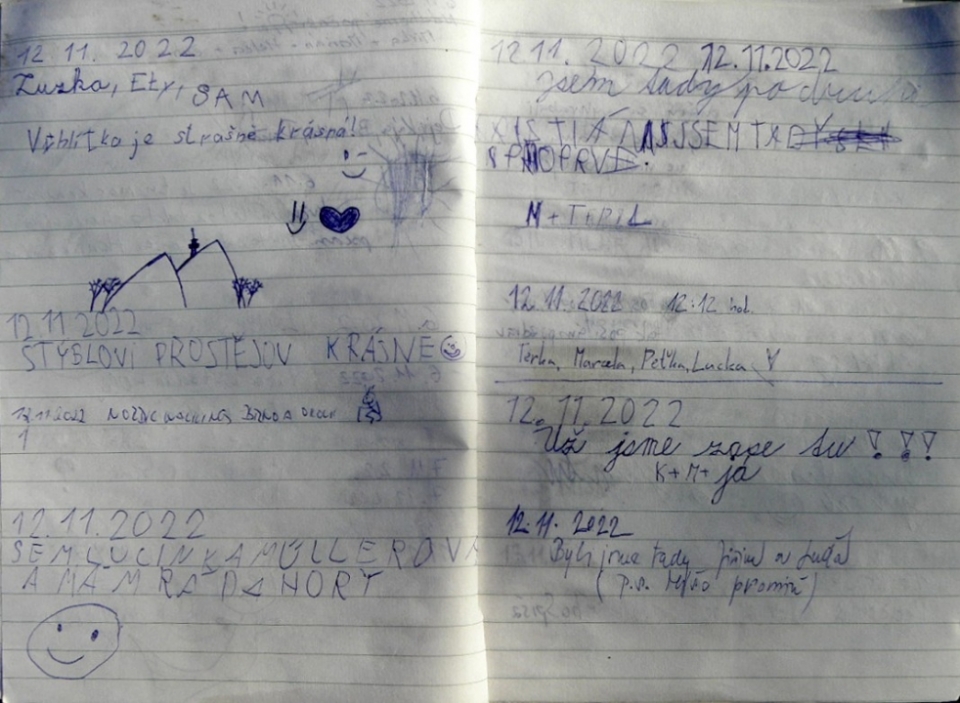 12. 11. 2022
Zuzka, Ety, SAM
je strašně krásná!
12 11 2022
ŠTÝSLOVI PROSTĚJOV KRÁSNĚ
12.11.2022 NORDIC WALKING BRNO A OKOLÍ
12.11.2022
SEM LUCINKA MÜLLEROVÁ
A MÁM RÁDA HORY
12.11.2022 12.11.2022
jsem tady po druhé
JSEM TADY
POPRVÉ.
12.11.2022 12:12 hod.
Terka, Marcela, Peťka, Lucka
12.11.2022
Už jsme zape tu!!!
K+M+já
12.11.2022
Byli jsme tady a
(p.s. promiň)